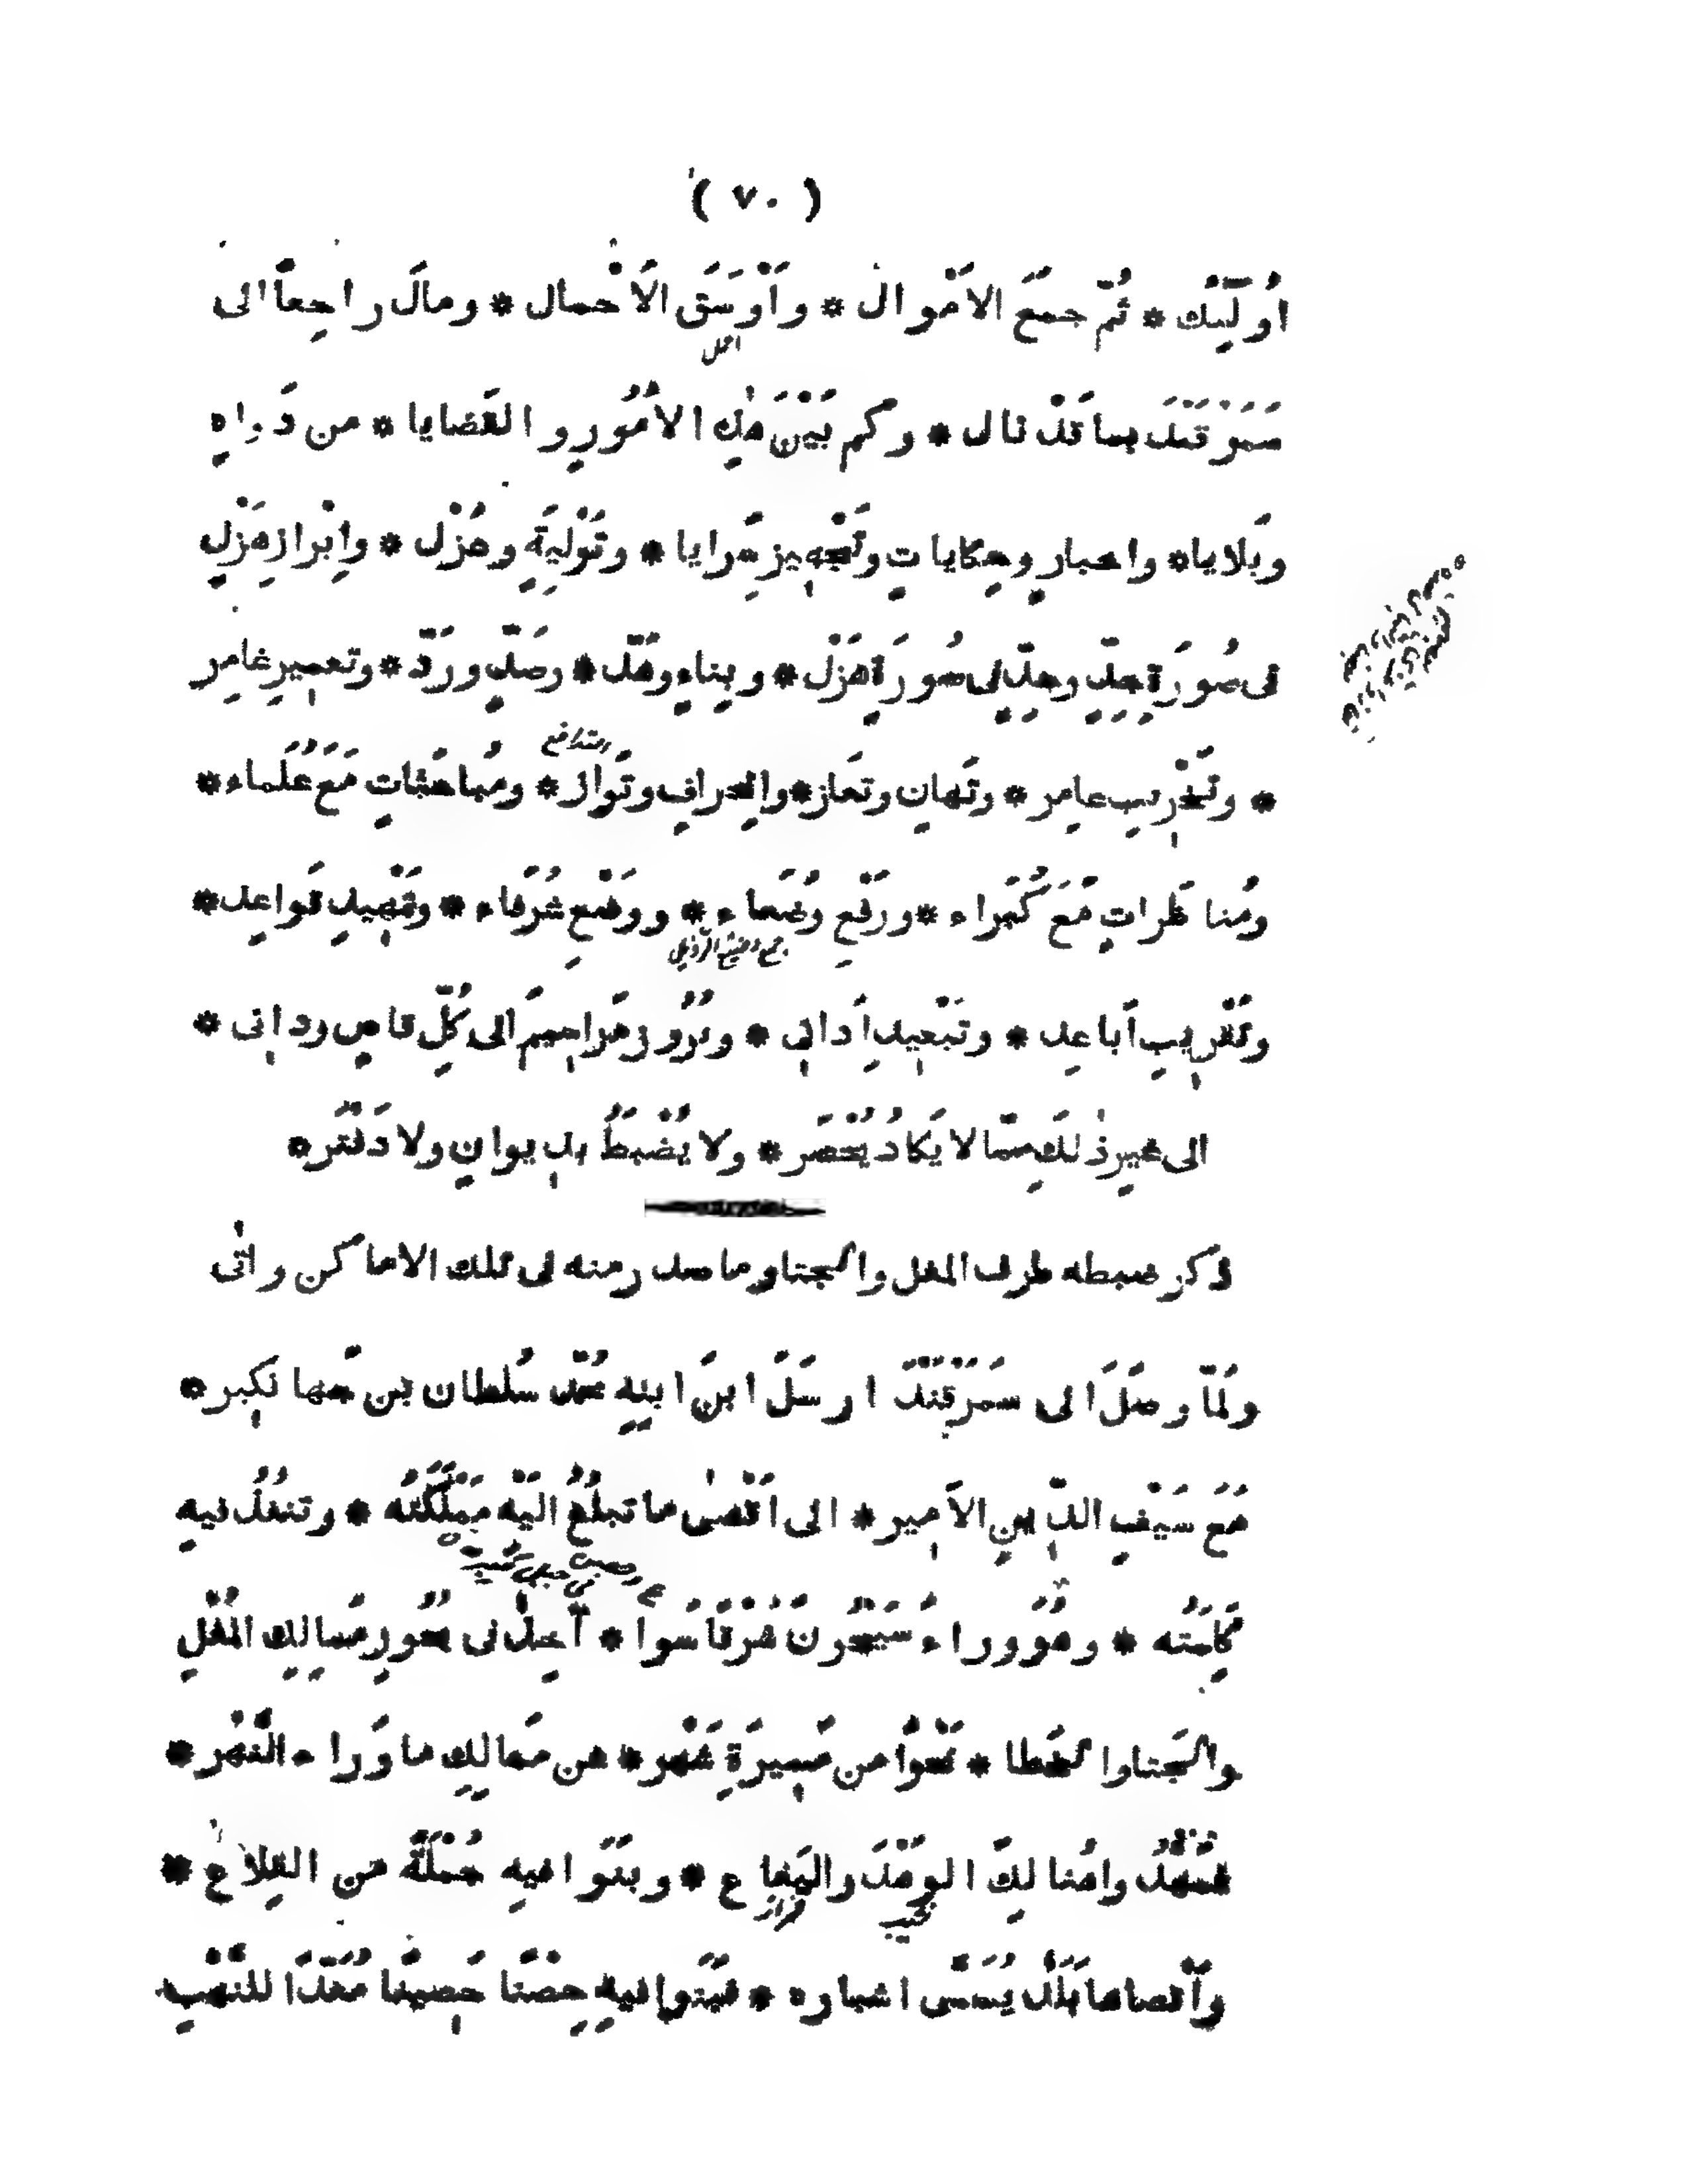 ( ٧٠ )
أُولَٰئِكَ * ثُمَّ جَمَعَ الأَمْوال * وأَوْسَقَ الأَحْمال * ومالَ راجِعاً الى
سَمَرْقَنْدَ بما قَدْ نال * وكم بَيْنَ هٰذِهِ الأُمُورِ والقَضايا * من دَواهٍ
وبَلايا * واخبارٍ وحِكاياتٍ وتَجْهِيزِ سَرايا * وتَوْلِيَةٍ وعَزْل * وإِبْرازِ هَزْلٍ
فى صُورَةِ جِدٍّ وجِدٍّ فى صُورَةِ هَزْل * وبِناءٍ وهَدّ * وصَدٍّ ورَدّ * وتعمِيرِ غامِر
* وتَخْرِيبِ عامِر * وتَهانٍ وتَعازٍ * وانْحِرافٍ وتَوازٍ * ومُباحَثاتٍ مَعَ عُلَماء *
ومُناظَراتٍ مَعَ كُبَراء * ورَفْعِ وُضَعاء * ووَضْعِ شُرَفاء * وتَمْهِيدِ قَواعِد *
وتَقْرِيبِ أَباعِد * وتَبْعِيدِ أَدانِى * وبُرُوزِ مَراسِيمَ الى كُلِّ قاصٍ ودانِى *
الى غيرِ ذٰلكَ مِمّا لا يَكادُ يُحْصَر * ولا يُضْبَطُ بِدِيوانٍ ولا دَفْتَر *
ذكر ضبطه طرف المغل والجتا وما صدر منه فى تلك الاماكن واتى
ولَمّا وصَلَ الى سَمَرْقَنْدَ ارسَلَ ابنَ ابنِهِ مُحَمَّد سُلطان بن جَهانكير *
مَعَ سَيْفِ الدِّينِ الأَمِير * الى اقْصى ما تبلُغُ اليْهِ مَمْلَكَتُه * وتنفُذُ فيهِ
كَلِمَتُه * وهُوَ وراءَ سَيْحُونَ شَرْقاً سُوا * آخِذٌ فى نُحُورِ مَمالِكِ المُغْلِ
والجَتا والخَطا * نَحْواً من مَسِيرَةِ شَهْر * من مَمالِكِ ما وَراءَ النَّهْر *
فمَهَّدُوا هُنالِكَ الوَهْدَ واليَفاع * وبَنَوا فيهِ جُمْلَةً مِنَ القِلاع *
وأَقْصاها بَلَدٌ يُسَمّى اشباره * فبَنَوا فيهِ حِصْناً حَصِيناً مُعَدّاً للنَّهْبِ